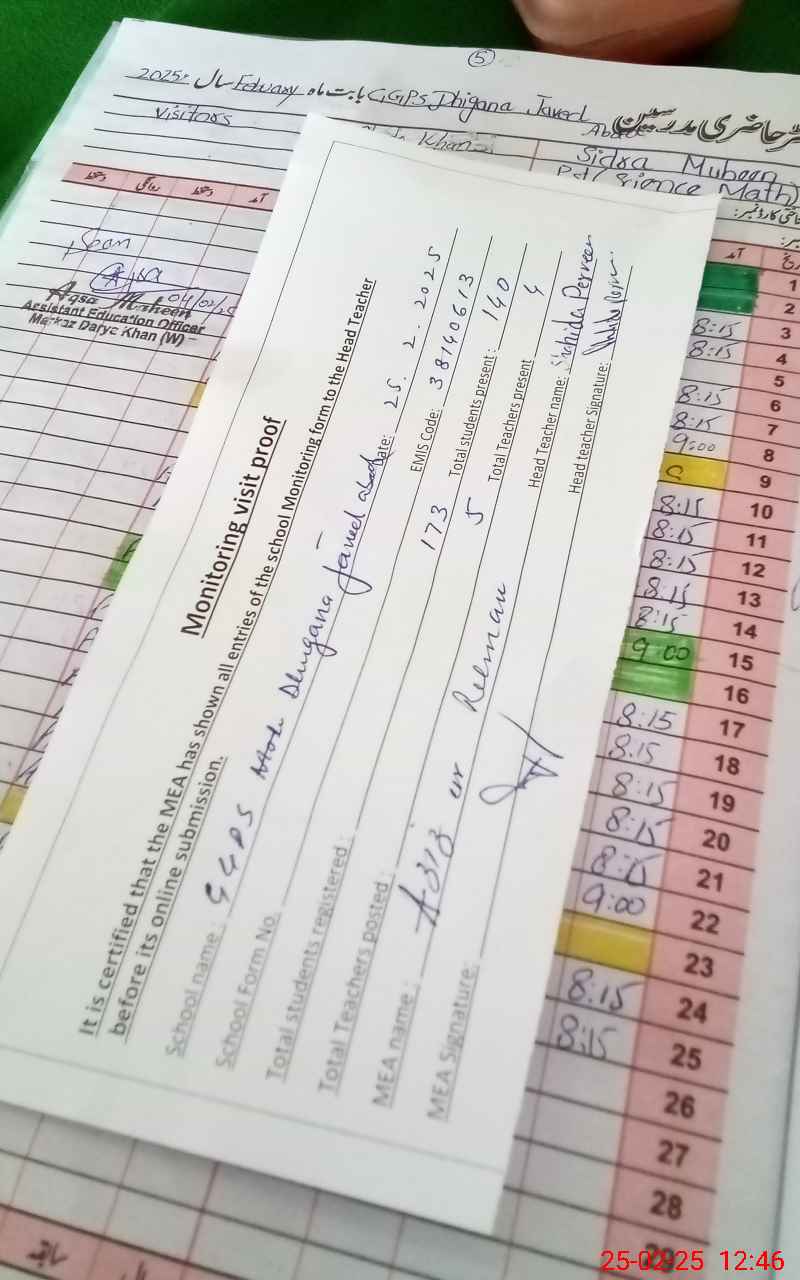 5
2025ء سال Febuary بابت ماہ GGPS Dhigana Javed Abad
حاضری مدرسین
Visitors
Khan
Sidra Mubeen
Pst (Science Math)
آمد
دستخط
روانگی
دستخط
آمد
04/02/25
Aqsa Maheen
Assistant Education Officer
Markaz Darya Khan (W)
Monitoring visit proof
It is certified that the MEA has shown all entries of the school Monitoring form to the Head Teacher
before its online submission.
School name: GGPS Dhugana Javed abad Date: 25. 2. 2025
School Form No. EMIS Code: 38140613
Total students registered: 173 Total students present: 140
Total Teachers posted: 5 Total Teachers present 4
MEA name: Aziz ur Rehman Head Teacher name: Shahida Perveen
MEA Signature: Head teacher Signature:
1
2
8:15 3
8:15 4
5
8:15 6
8:15 7
9:00 8
9
8:15 10
8:15 11
8:15 12
8:15 13
8:15 14
9 00 15
16
8:15 17
8:15 18
8:15 19
8:15 20
8:15 21
9:00 22
23
8:15 24
8:15 25
26
27
28
29
سابقہ
25-02-25 12:46